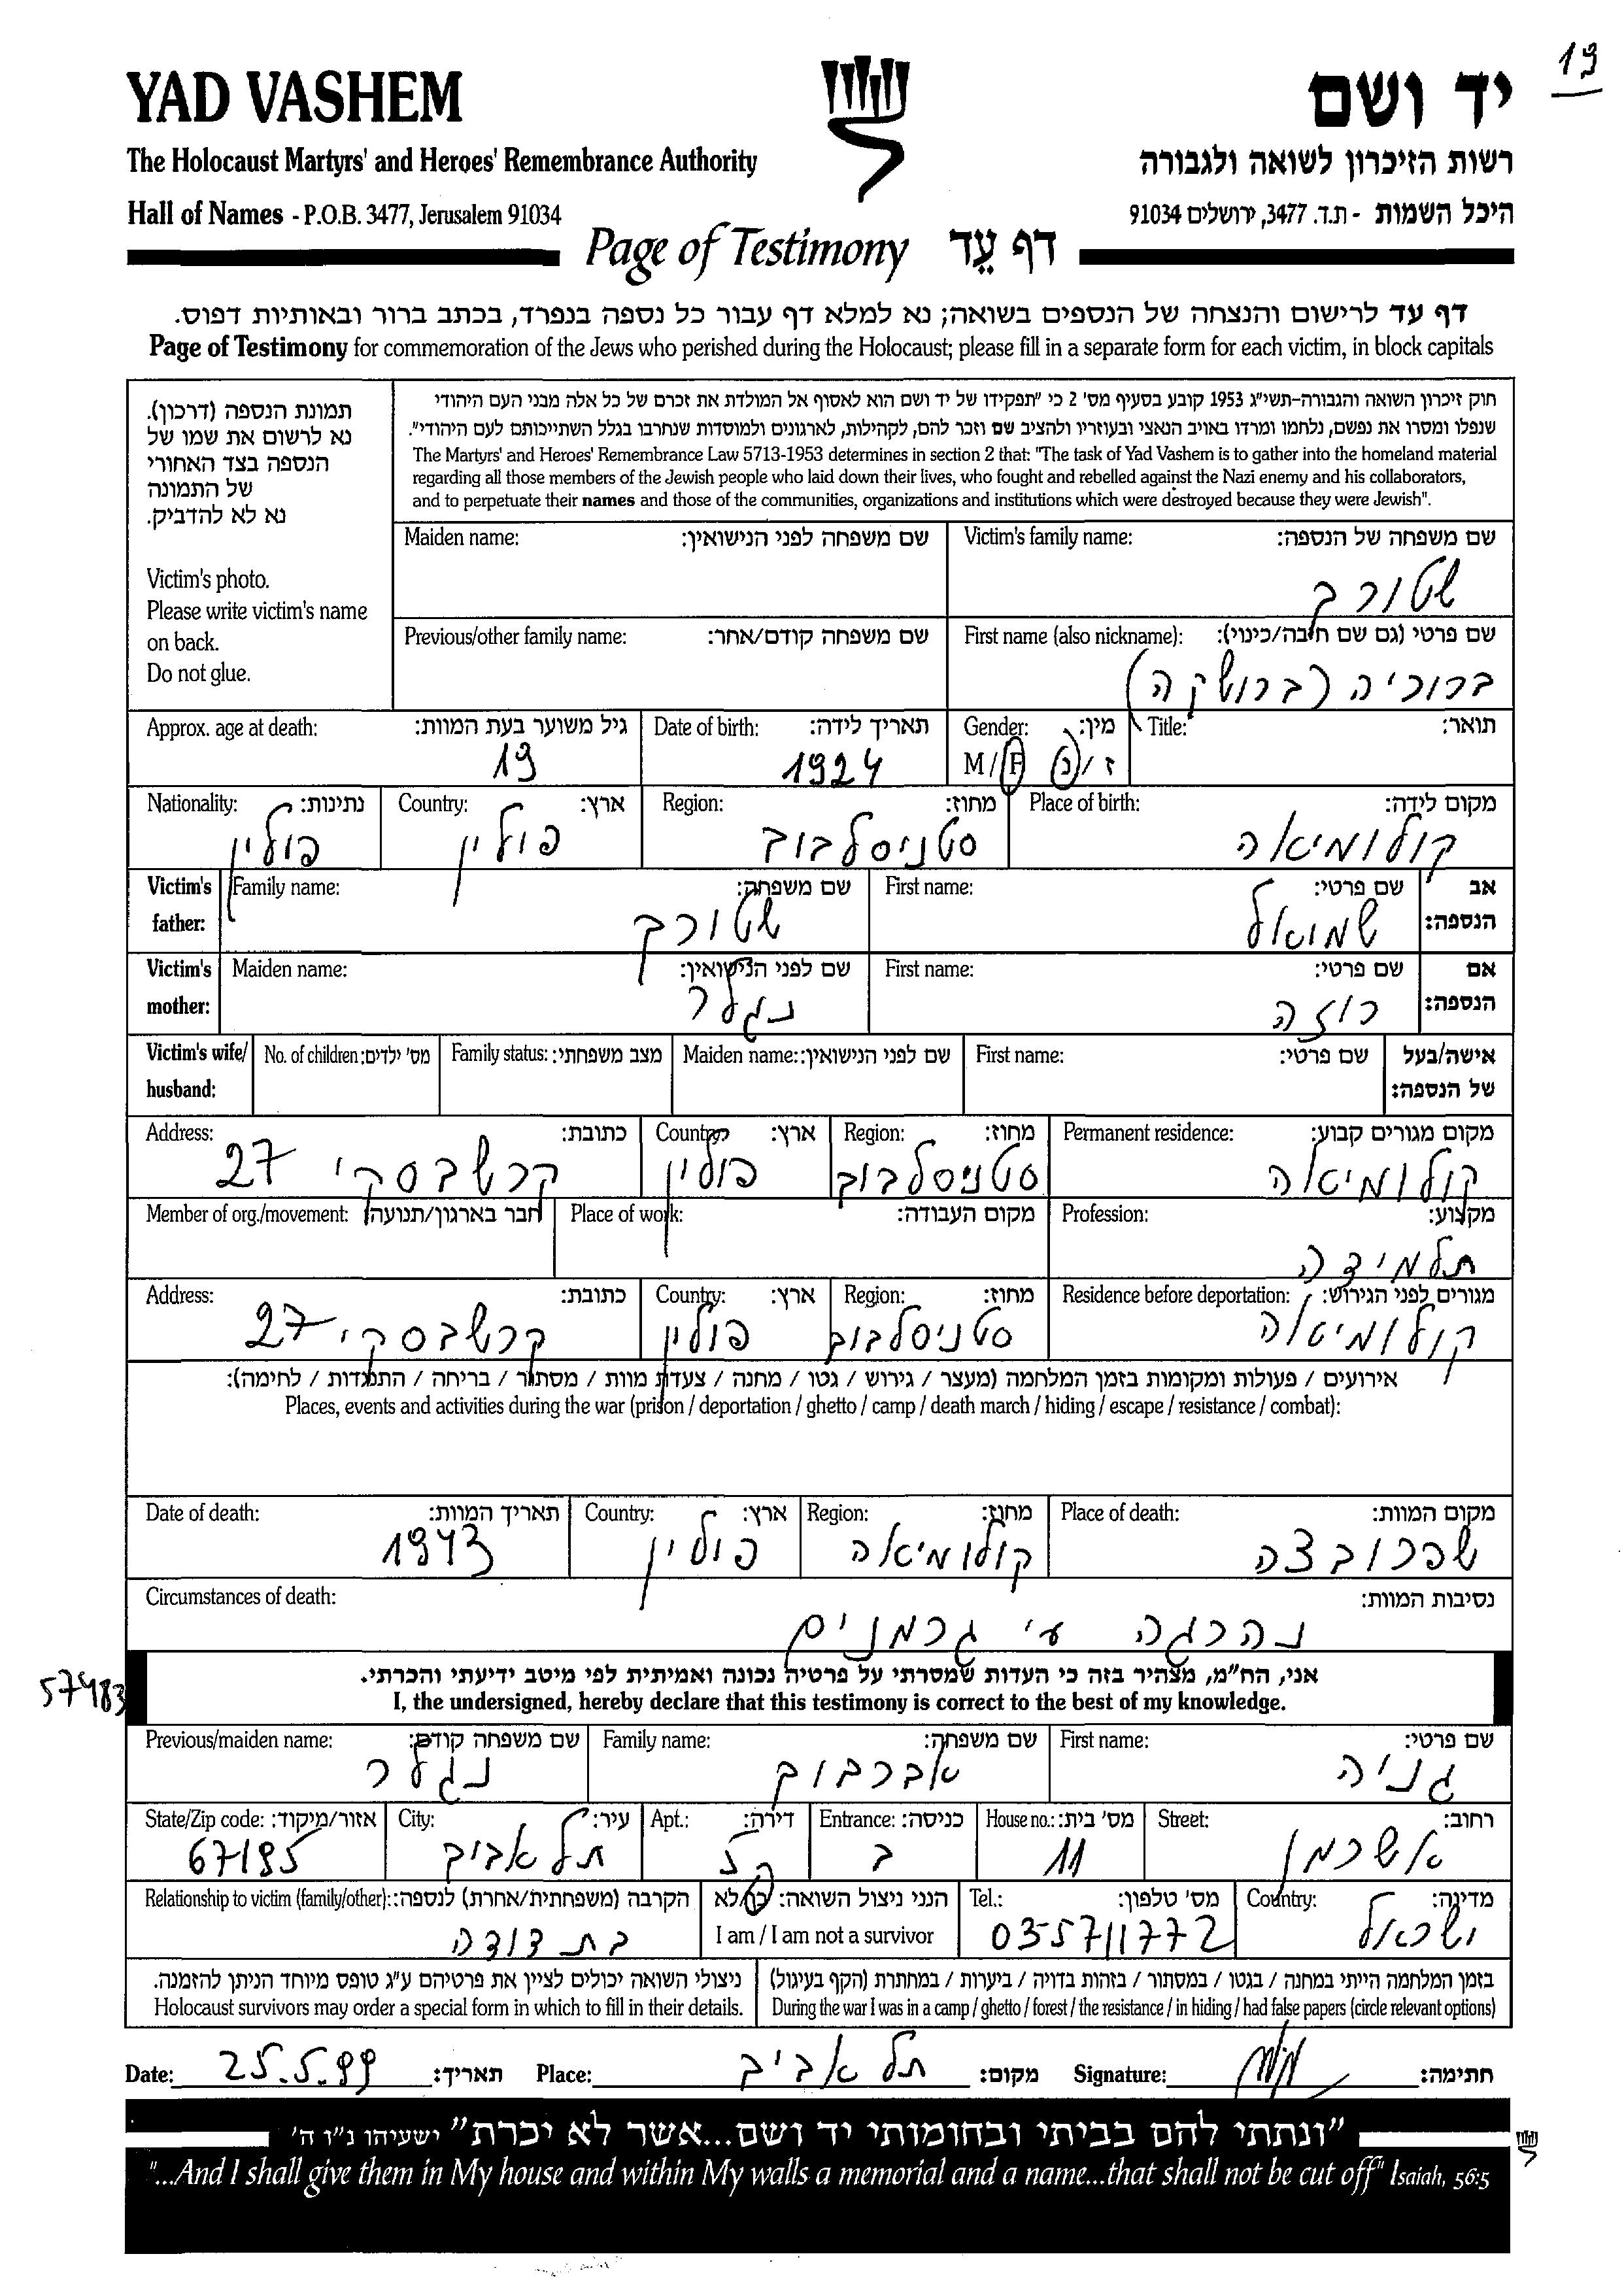 19
YAD VASHEM יד ושם
The Holocaust Martyrs' and Heroes' Remembrance Authority רשות הזיכרון לשואה ולגבורה
Hall of Names - P.O.B. 3477, Jerusalem 91034 היכל השמות - ת.ד. 3477, ירושלים 91034
Page of Testimony דף עֵד
דף עד לרישום והנצחה של הנספים בשואה; נא למלא דף עבור כל נספה בנפרד, בכתב ברור ובאותיות דפוס.
Page of Testimony for commemoration of the Jews who perished during the Holocaust; please fill in a separate form for each victim, in block capitals
תמונת הנספה (דרכון).
נא לרשום את שמו של
הנספה בצד האחורי
של התמונה
נא לא להדביק.
Victim's photo.
Please write victim's name
on back.
Do not glue.
חוק זיכרון השואה והגבורה-תשי"ג 1953 קובע בסעיף מס' 2 כי "תפקידו של יד ושם הוא לאסוף אל המולדת את זכרם של כל אלה מבני העם היהודי
שנפלו ומסרו את נפשם, נלחמו ומרדו באויב הנאצי ובעוזריו ולהציב שם וזכר להם, לקהילות, לארגונים ולמוסדות שנחרבו בגלל השתייכותם לעם היהודי".
The Martyrs' and Heroes' Remembrance Law 5713-1953 determines in section 2 that: "The task of Yad Vashem is to gather into the homeland material
regarding all those members of the Jewish people who laid down their lives, who fought and rebelled against the Nazi enemy and his collaborators,
and to perpetuate their names and those of the communities, organizations and institutions which were destroyed because they were Jewish".
Maiden name: שם משפחה לפני הנישואין: Victim's family name: שם משפחה של הנספה:
שטורך
Previous/other family name: שם משפחה קודם/אחר: First name (also nickname): שם פרטי (גם שם חיבה/כינוי):
ברוריה (ברושקה)
Approx. age at death: גיל משוער בעת המוות: Date of birth: תאריך לידה: Gender: מין: Title: תואר:
19 1924 M/F ז/נ
Nationality: נתינות: Country: ארץ: Region: מחוז: Place of birth: מקום לידה:
פולין פולין סטניסלבוב קולומיאה
Victim's father: Family name: שם משפחה: First name: שם פרטי: אב הנספה:
שטורך שמואל
Victim's mother: Maiden name: שם לפני הנישואין: First name: שם פרטי: אם הנספה:
נגלר רוזה
Victim's wife/ husband: No. of children: מס' ילדים: Family status: מצב משפחתי: Maiden name: שם לפני הנישואין: First name: שם פרטי: אישה/בעל של הנספה:
Address: כתובת: Country: ארץ: Region: מחוז: Permanent residence: מקום מגורים קבוע:
קרשבסקי 27 פולין סטניסלבוב קולומיאה
Member of org./movement: חבר בארגון/תנועה: Place of work: מקום העבודה: Profession: מקצוע:
תלמידה
Address: כתובת: Country: ארץ: Region: מחוז: Residence before deportation: מגורים לפני הגירוש:
קרשבסקי 27 פולין סטניסלבוב קולומיאה
אירועים / פעולות ומקומות בזמן המלחמה (מעצר / גירוש / גטו / מחנה / צעדת מוות / מסתור / בריחה / התנגדות / לחימה):
Places, events and activities during the war (prison / deportation / ghetto / camp / death march / hiding / escape / resistance / combat):
Date of death: תאריך המוות: Country: ארץ: Region: מחוז: Place of death: מקום המוות:
1943 פולין קולומיאה שפרובצה
Circumstances of death: נסיבות המוות:
נהרגה ע"י גרמנים
57483
אני, הח"מ, מצהיר בזה כי העדות שמסרתי על פרטיה נכונה ואמיתית לפי מיטב ידיעתי והכרתי.
I, the undersigned, hereby declare that this testimony is correct to the best of my knowledge.
Previous/maiden name: שם משפחה קודם: Family name: שם משפחה: First name: שם פרטי:
נגלר אברבוך גניה
State/Zip code: אזור/מיקוד: City: עיר: Apt.: דירה: Entrance: כניסה: House no.: מס' בית: Street: רחוב:
67195 תל אביב ב 11 אשרמן
Relationship to victim (family/other): הקרבה (משפחתית/אחרת) לנספה: הנני ניצול השואה: כן/לא Tel.: מס' טלפון: Country: מדינה:
בת דודה I am / I am not a survivor 03-5711772 ישראל
ניצולי השואה יכולים לציין את פרטיהם ע"ג טופס מיוחד הניתן להזמנה. בזמן המלחמה הייתי במחנה / בגטו / במסתור / בזהות בדויה / ביערות / במחתרת (הקף בעיגול)
Holocaust survivors may order a special form in which to fill in their details. During the war I was in a camp / ghetto / forest / the resistance / in hiding / had false papers (circle relevant options)
Date: 25.5.99 תאריך: Place: תל אביב מקום: Signature: חתימה:
"ונתתי להם בביתי ובחומותי יד ושם...אשר לא יכרת" ישעיהו נ"ו ה'
"...And I shall give them in My house and within My walls a memorial and a name...that shall not be cut off" Isaiah, 56:5